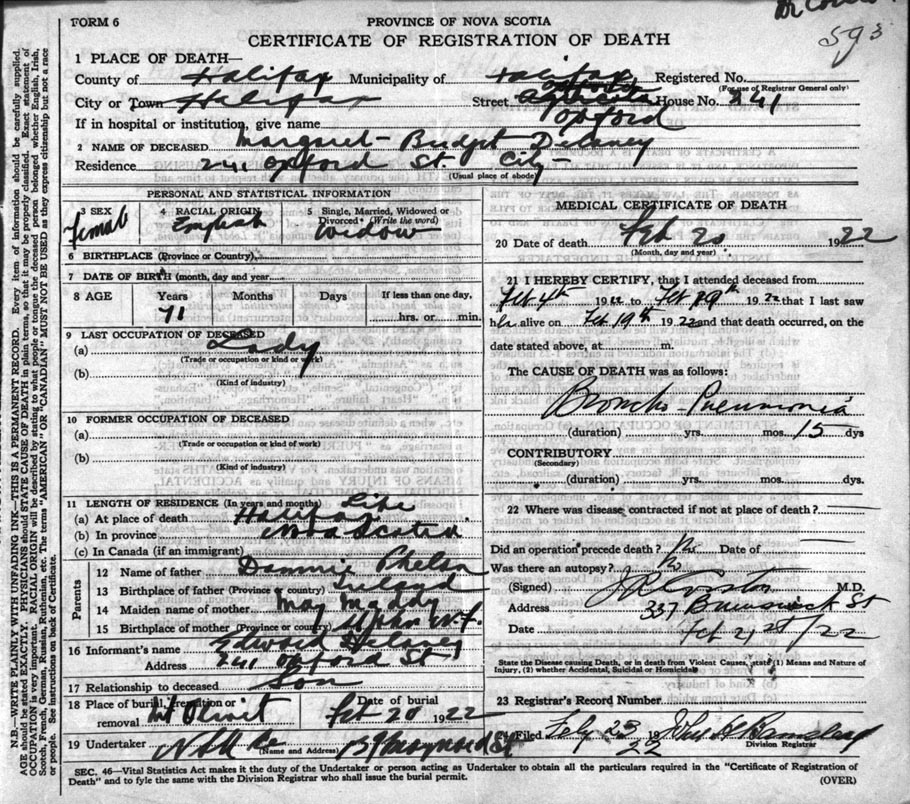 FORM 6
PROVINCE OF NOVA SCOTIA
CERTIFICATE OF REGISTRATION OF DEATH
593
1 PLACE OF DEATH—
County of Halifax Municipality of Halifax Registered No.
(For use of Registrar General only)
City or Town Halifax Street Oxford House No. 241
If in hospital or institution, give name
2 NAME OF DECEASED Margaret - Budget Delaney
Residence 241 Oxford St. City -
(Usual place of abode)
PERSONAL AND STATISTICAL INFORMATION
3 SEX Female 4 RACIAL ORIGIN English 5 Single, Married, Widowed or Divorced (Write the word) Widow
6 BIRTHPLACE (Province or Country)
7 DATE OF BIRTH (month, day and year)
8 AGE Years Months Days If less than one day,
71 hrs. or min.
9 LAST OCCUPATION OF DECEASED
(a) Lady
(Trade or occupation or kind of work)
(b)
(Kind of industry)
10 FORMER OCCUPATION OF DECEASED
(a)
(Trade or occupation or kind of work)
(b)
(Kind of industry)
11 LENGTH OF RESIDENCE (In years and months) Life
(a) At place of death Halifax
(b) In province Nova Scotia
(c) In Canada (if an immigrant)
Parents
12 Name of father Dannie Phelan
13 Birthplace of father (Province or country) Ireland
14 Maiden name of mother May Maddy
15 Birthplace of mother (Province or country) St John N.F.
16 Informant's name Edward Delaney
Address 241 Oxford St
17 Relationship to deceased Son
18 Place of burial, cremation or removal Mt Olivet Date of burial Feb 20 1922
19 Undertaker N S U Co (Name and Address) Maynard St
MEDICAL CERTIFICATE OF DEATH
20 Date of death Feb 20 1922
(Month, day and year)
21 I HEREBY CERTIFY, that I attended deceased from
Feb 4th 1922 to Feb 19th 1922 that I last saw
her alive on Feb 19th 1922 and that death occurred, on the
date stated above, at m.
The CAUSE OF DEATH was as follows:
Broncho - Pneumonia
(duration) yrs. mos. 15 dys
CONTRIBUTORY
(Secondary)
(duration) yrs. mos. dys.
22 Where was disease contracted if not at place of death?
Did an operation precede death? No Date of
Was there an autopsy? No
(Signed) M.D.
Address 337 Brunswick St
Date Feb 21st / 22
State the Disease causing Death, or in death from Violent Causes, state (1) Means and Nature of
Injury, (2) whether Accidental, Suicidal or Homicidal
23 Registrar's Record Number
24 Filed Feby 23 1922 John H
Division Registrar
SEC. 46—Vital Statistics Act makes it the duty of the Undertaker or person acting as Undertaker to obtain all the particulars required in the "Certificate of Registration of
Death" and to fyle the same with the Division Registrar who shall issue the burial permit.
(OVER)
N.B.—WRITE PLAINLY WITH UNFADING INK—THIS IS A PERMANENT RECORD. Every item of information should be carefully supplied.
AGE should be stated EXACTLY. PHYSICIANS should STATE CAUSE OF DEATH in plain terms, so that it may be properly classified. Exact statement of
OCCUPATION is very important. RACIAL ORIGIN will be described by stating to what people or tongue the deceased person belonged whether English, Irish,
Scotch, French, German, Russian, Ruthenian, etc. The terms "AMERICAN" OR "CANADIAN" MUST NOT BE USED as they express citizenship but not a race
or people. See instructions on back of Certificate.